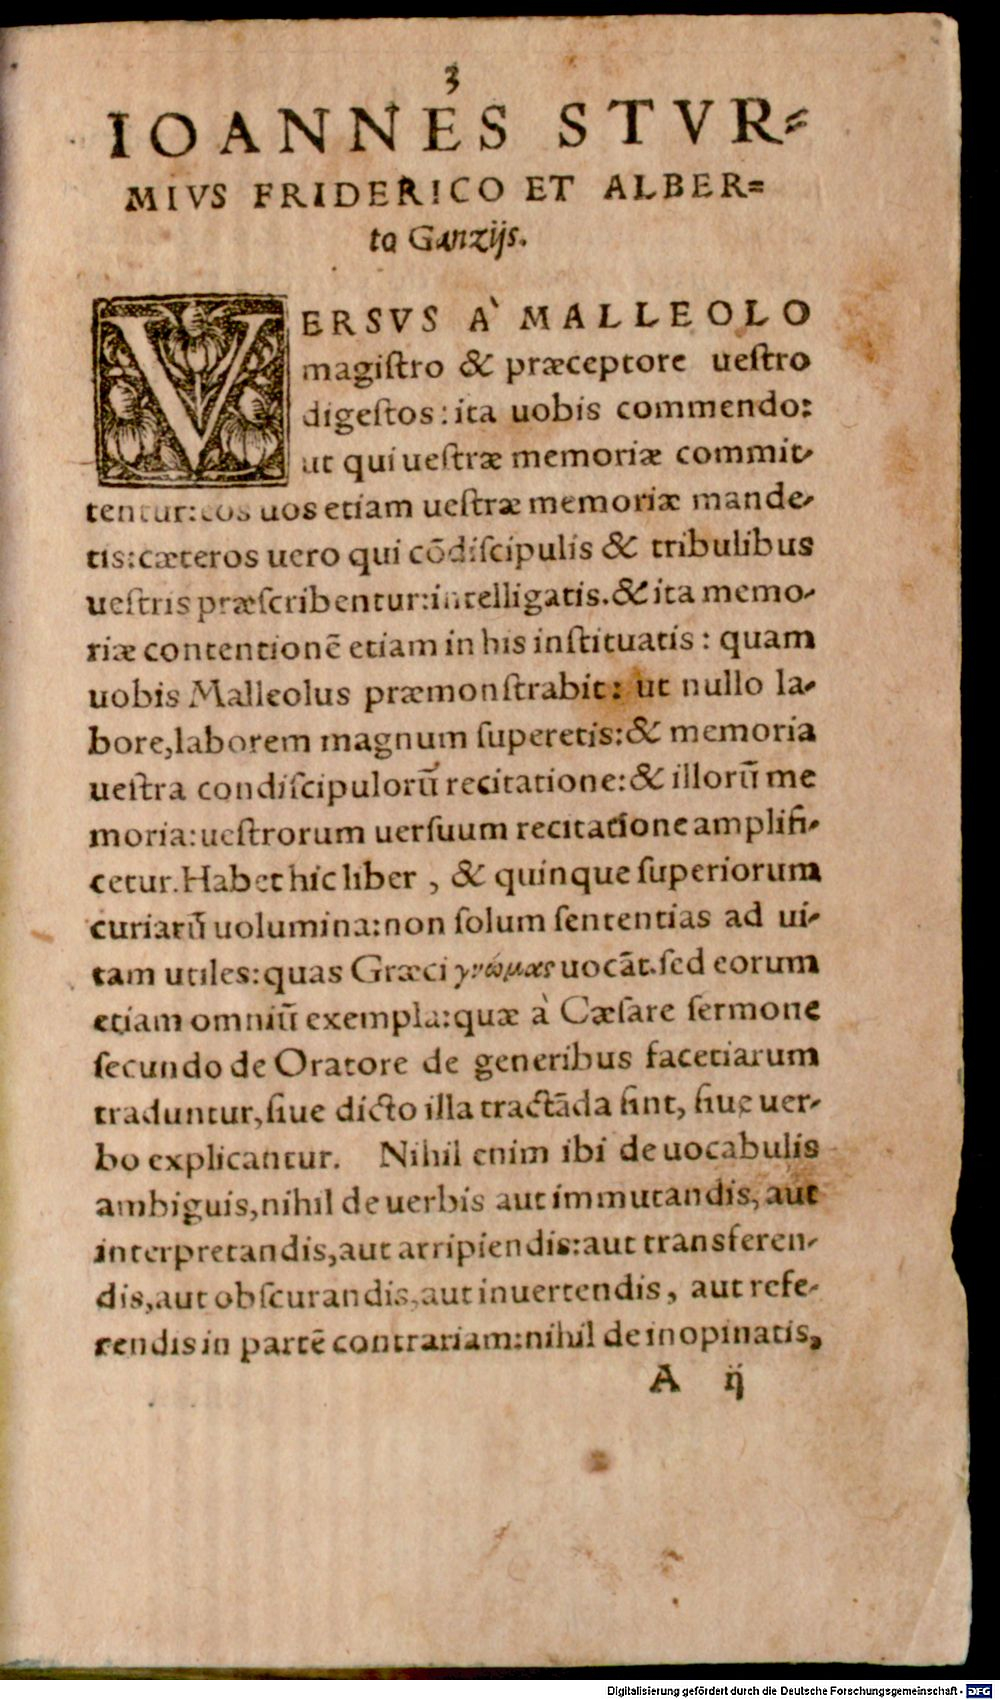 3
IOANNES STVR=
MIVS FRIDERICO ET ALBER=
to Ganzijs.
VERSVS A` MALLEOLO
magiſtro & præceptore ueſtro
digeſtos: ita uobis commendo:
ut qui ueſtræ memoriæ commit-
tentur: eos uos etiam ueſtræ memoriæ mande-
tis: cæteros uero qui cōdiſcipulis & tribulibus
ueſtris præſcribentur: intelligatis. & ita memo-
riæ contentionē etiam in his inſtituatis: quam
uobis Malleolus præmonſtrabit: ut nullo la-
bore, laborem magnum ſuperetis: & memoria
ueſtra condiſcipulorū recitatione: & illorū me
moria: ueſtrorum uerſuum recitatione amplifi-
cetur. Habet hic liber, & quinque ſuperiorum
curiarū uolumina: non ſolum ſententias ad ui-
tam utiles: quas Græci γνώμας uocāt. ſed eorum
etiam omniū exempla: quæ à Cæſare ſermone
ſecundo de Oratore de generibus facetiarum
traduntur, ſiue dicto illa tractāda ſint, ſiue uer-
bo explicantur. Nihil enim ibi de uocabulis
ambiguis, nihil de uerbis aut immutandis, aut
interpretandis, aut arripiendis: aut transferen-
dis, aut obſcurandis, aut inuertendis, aut refe-
rendis in partē contrariam: nihil de inopinatis,
A ij
Digitalisierung gefördert durch die Deutsche Forschungsgemeinschaft - DFG